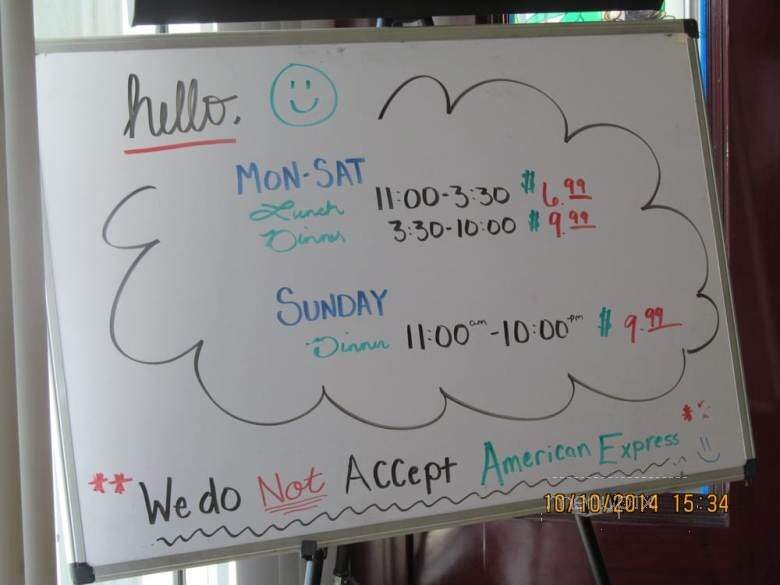 hello.
MON-SAT
Lunch 11:00-3:30 $6.99
Dinner 3:30-10:00 $9.99
SUNDAY
Dinner 11:00am-10:00pm $9.99
** We do Not Accept American Express *
10/10/2014 15:34